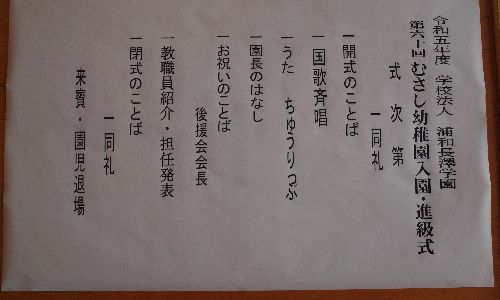 令和五年度 学校法人 浦和長澤学園
第六十回 むさし幼稚園入園・進級式
式次第
一同礼
一開式のことば
一国歌斉唱
一うた ちゅうりっぷ
一園長のはなし
一お祝いのことば
後援会会長
一教職員紹介・担任発表
一閉式のことば
一同礼
来賓・園児退場